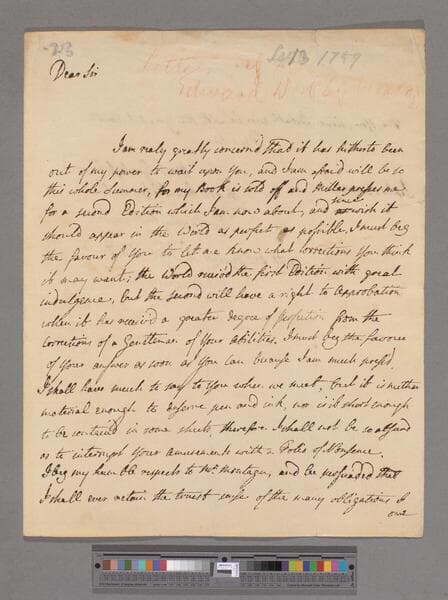 23
Sep 13 1759
Letter
Edward W
Dear Sir
I am realy greatly concern'd that it has hitherto been
out of my power to wait upon you, and I am afraid will be so
this whole Summer, for my Book is sold off and Millar presses me
for a second Edition which I am now about, and since I wish it
should appear in the World as perfect as possible, I must beg
the favour of You to let me know what corrections You think
it may want; the World receiv'd the first Edition with great
indulgence, but the second will have a right to Approbation
when it has receiv'd a greater degree of perfection from the
corrections of a Gentleman of Your abilities. I must beg the favour
of Your answer as soon as You can because I am much press'd.
I shall have much to say to You when we meet, but it is neither
material enough to deserve pen and ink, nor is it short enough
to be contain'd in some sheets, therefore I shall not be so absurd
as to interrupt Your amusements with a Folio of Nonsense.
I beg my humble respects to Mrs. Montagu, and be persuaded that
I shall ever retain the truest sense of the many obligations I
owe